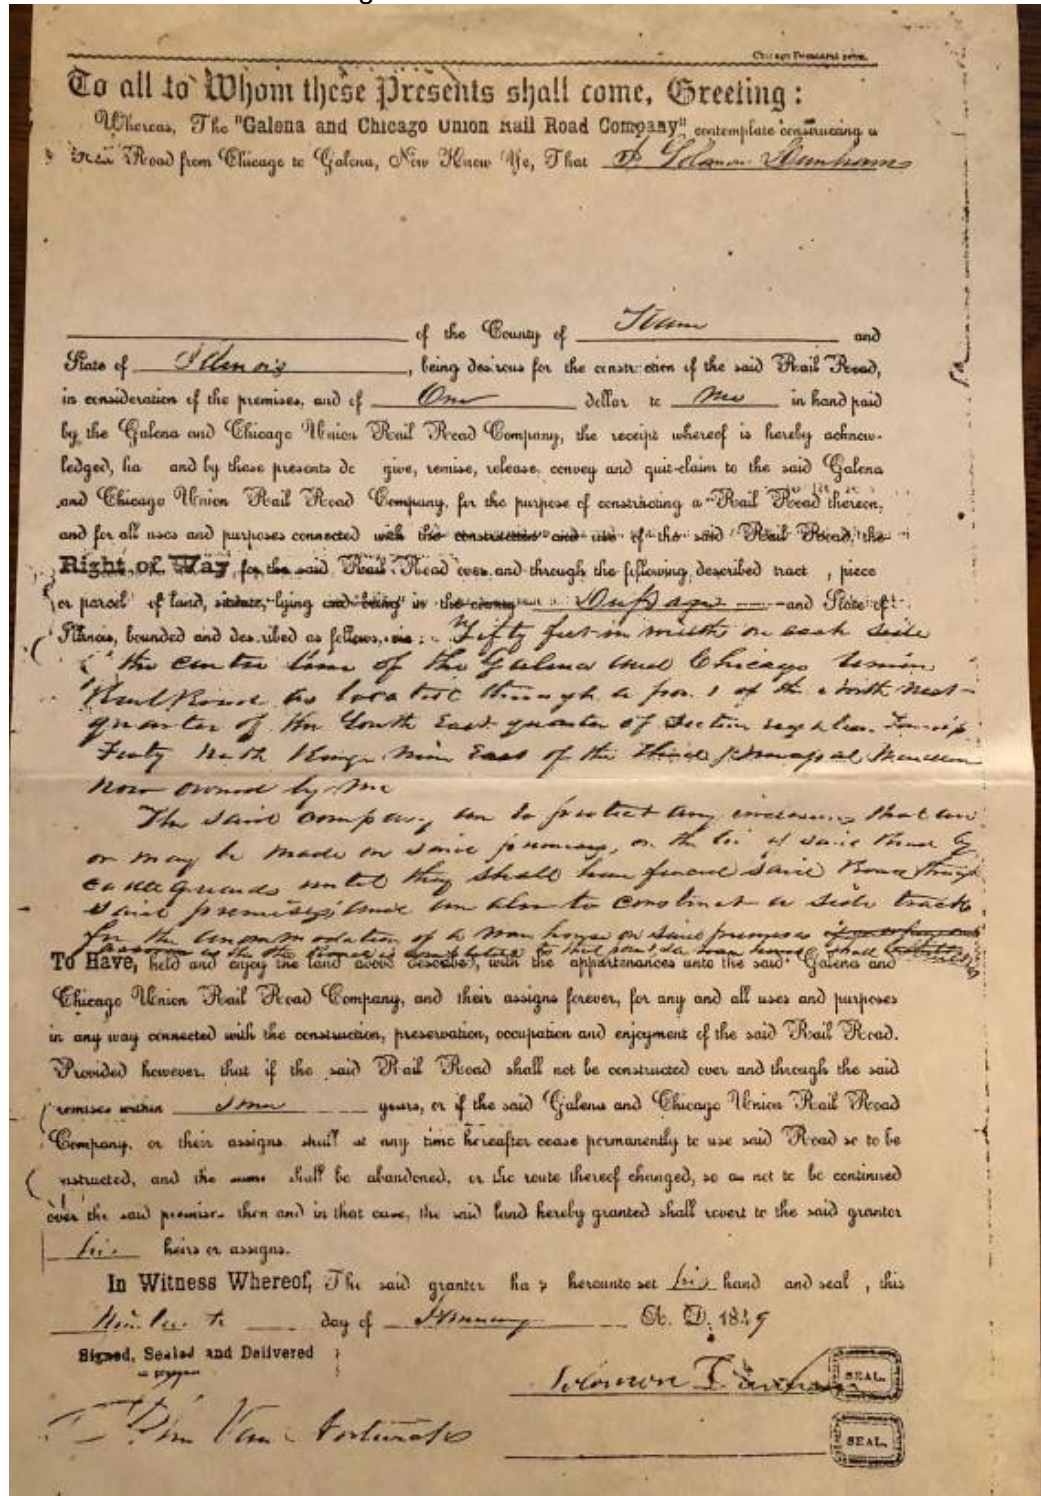 To all to Whom these Presents shall come, Greeting:
Whereas, The "Galena and Chicago Union Rail Road Company" contemplate constructing a
Rail Road from Chicago to Galena, Now Know Ye, That I Solomon Dunham
of the County of Kane and
State of Illinois, being desirous for the construction of the said Rail Road,
in consideration of the premises, and of One dollar to me in hand paid
by the Galena and Chicago Union Rail Road Company, the receipt whereof is hereby acknow-
ledged, ha and by these presents do give, remise, release, convey and quit-claim to the said Galena
and Chicago Union Rail Road Company, for the purpose of constructing a Rail Road thereon,
and for all uses and purposes connected with the construction and use of the said Rail Road, the
Right of Way, for the said Rail Road over and through the following described tract, piece
or parcel of land, situate, lying and being in the county DuPage and State of
Illinois, bounded and described as follows, viz: Fifty feet in width on each side
the center line of the Galena and Chicago Union
Rail Road as located through a of the North West
quarter of the South East quarter of Section
Forty North Range Nine East of the Third Principal Meridian
now owned by me
The said company are to protect any that are
or may be made on said premises, on the of said Road by
cattle guards until they shall have fenced said Road through
said premises, and are also to construct a side track
for the accommodation of a ware house on said premises
to that point, shall
To Have, held and enjoy the land above described, with the appartenances unto the said Galena and
Chicago Union Rail Road Company, and their assigns forever, for any and all uses and purposes
in any way connected with the construction, preservation, occupation and enjoyment of the said Rail Road.
Provided however, that if the said Rail Road shall not be constructed over and through the said
premises within years, or if the said Galena and Chicago Union Rail Road
Company, or their assigns shall at any time hereafter cease permanently to use said Road so to be
nstructed, and the same shall be abandoned, or the route thereof changed, so as not to be continued
over the said premises then and in that case, the said land hereby granted shall revert to the said grantor
his heirs or assigns.
In Witness Whereof, The said grantor has hereunto set his hand and seal, this
day of January A. D. 1849
Signed, Sealed and Delivered
Solomon Dunham SEAL.
Van
SEAL.